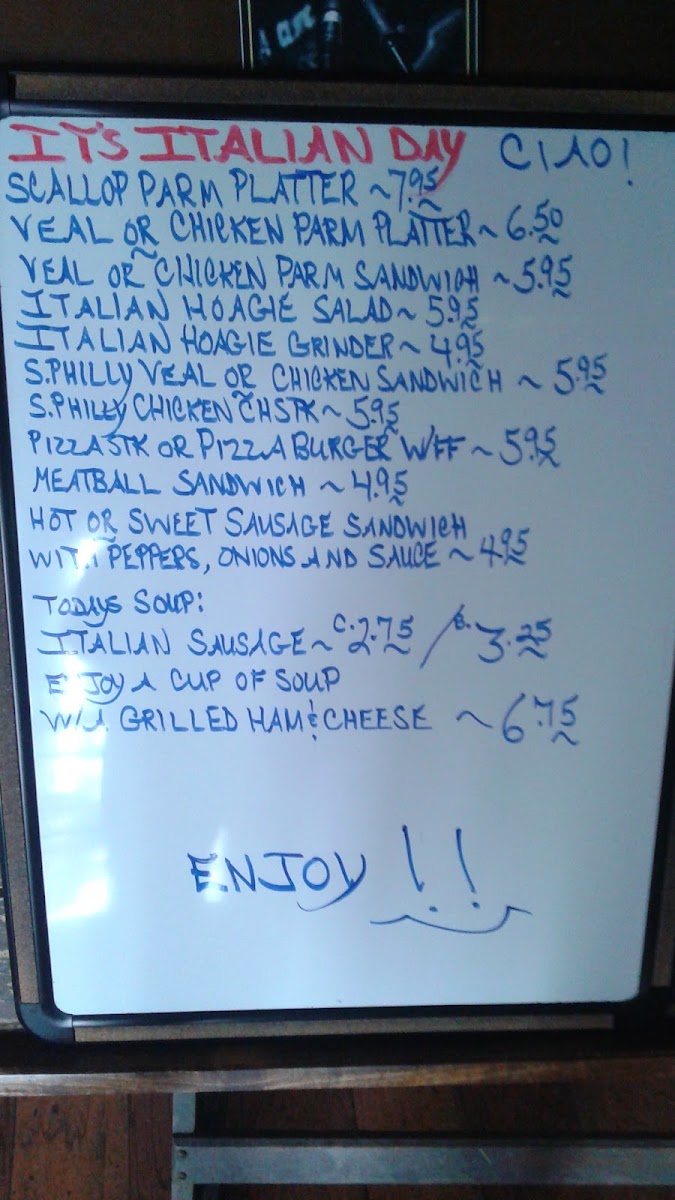 IT'S ITALIAN DAY CIAO!
SCALLOP PARM PLATTER ~ 7.95
VEAL OR CHICKEN PARM PLATTER ~ 6.50
VEAL OR CHICKEN PARM SANDWICH ~ 5.95
ITALIAN HOAGIE SALAD ~ 5.95
ITALIAN HOAGIE GRINDER ~ 4.95
S.PHILLY VEAL OR CHICKEN SANDWICH ~ 5.95
S.PHILLY CHICKEN CHSTK ~ 5.95
PIZZA STK OR PIZZA BURGER W/FF ~ 5.95
MEATBALL SANDWICH ~ 4.95
HOT OR SWEET SAUSAGE SANDWICH
WITH PEPPERS, ONIONS AND SAUCE ~ 4.95
TODAYS SOUP:
ITALIAN SAUSAGE ~ C. 2.75 / B. 3.25
ENJOY A CUP OF SOUP
W/A GRILLED HAM & CHEESE ~ 6.75
ENJOY!!